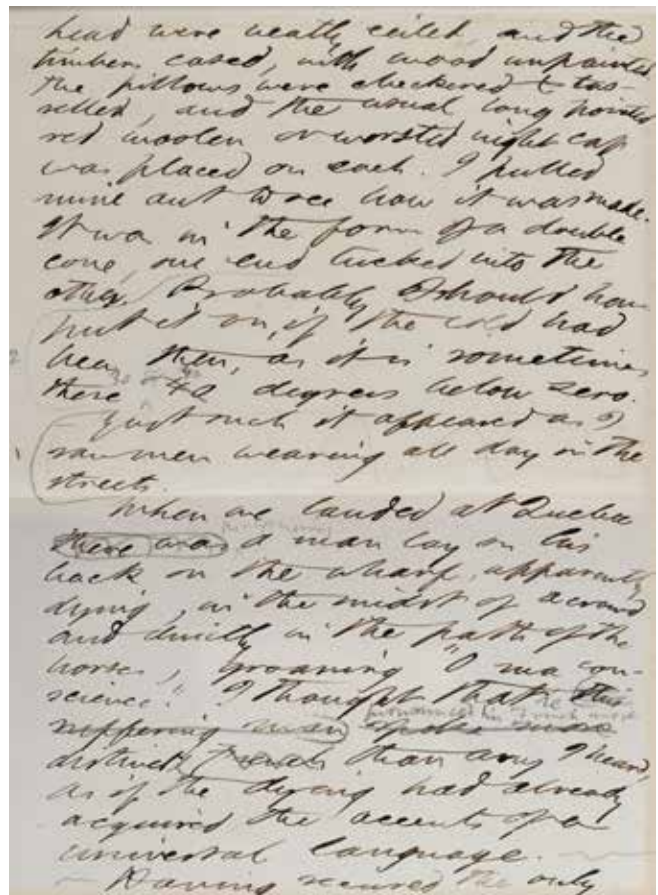 head were neatly ceiled, and the
timbers cased, with wood unpainted
the pillows were checkered & tas-
selled, and the usual long pointed
red woolen or worsted night cap
was placed on each. I pulled
mine out to see how it was made.
It was in the form of a double
cone, one end tucked into the
other. Probably I should have
put it on, if the cold had
been then, as it is sometimes
30 or
there 40 degrees below zero.
Just such it appeared as I
saw men wearing all day in the
streets.
When we landed at Quebec
there was a man lay on his
back on the wharf, apparently
dying, in the midst of a crowd
and directly in the path of the
horses, groaning "O ma con-
science." I thought that this
he
pronounced his French more
suffering man spoke more
distinctly French than any I heard,
as if the dying had already
acquired the accents of a
universal language.
Having secured the only